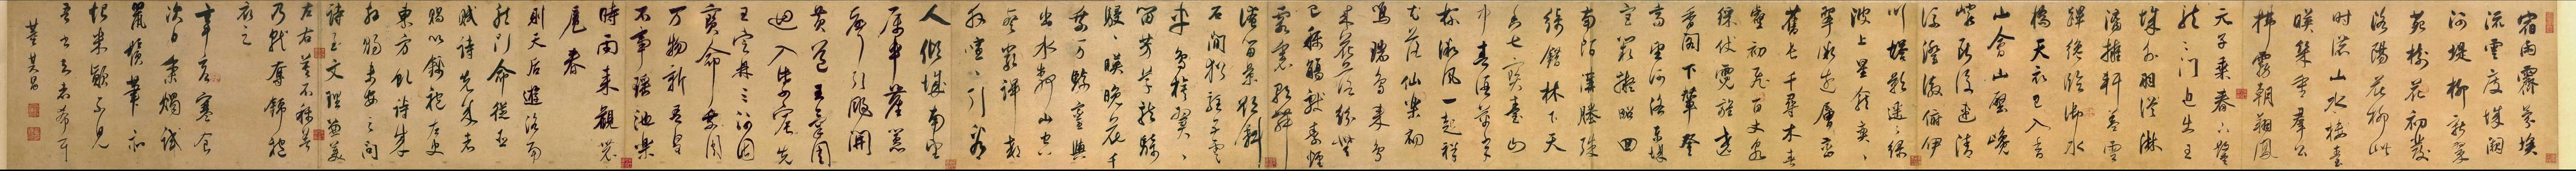 宿雨霽氛埃
流雲度城闕
河堤柳新翠
苑樹花初發
洛陽花柳此
時濃山水樓臺
映幾重群公
拂霧朝翔鳳
天子乘春鑿
龍〻門近出王
城外羽從淋
漓擁軒蓋雲
蹕纔臨御水
橋天衣已入香
山會山壁巉
巖斷復連清
流澄澈俯伊
川塔影遙〻綠
波上星龕奕〻
翠微邊層巒
舊長千尋木遠
壑初飛百丈泉
綵仗霓旌遶
香閣下輦登
高望河洛東城
宮闕擬昭回
南陌溝塍殊
綺錯林下天
香七寶臺山
中春酒萬年
杯微風一起祥
花落仙樂初
鳴瑞鳥來鳥
來花落紛無
已稱觴獻壽煙
霞裏歌舞
淹留景欲斜
石間猶駐五雲
車鳥旗翼〻
留芳草龍騎
駸〻映晚花千
乘萬騎鑾輿
出水靜山空
嚴警蹕郊
外喧〻引看
人傾城南望
屬車塵囂
聲引颺聞
黃道王氣周
迴入紫宸先
王定鼎三河固
寶命乘周
萬物新吾皇
不事瑤池樂
時雨來觀農
扈春
則天后遊洛南
龍門命從臣
賦詩先成者
賜以錦袍左史
東方虬詩成
拜賜坐未安之問
詩至文理兼美
左右莫不稱善
乃就奪錦袍
衣之
辛亥寒食
次日秉燭試
鼠鬚筆亦
恨米顛不見
吾書
董其昌